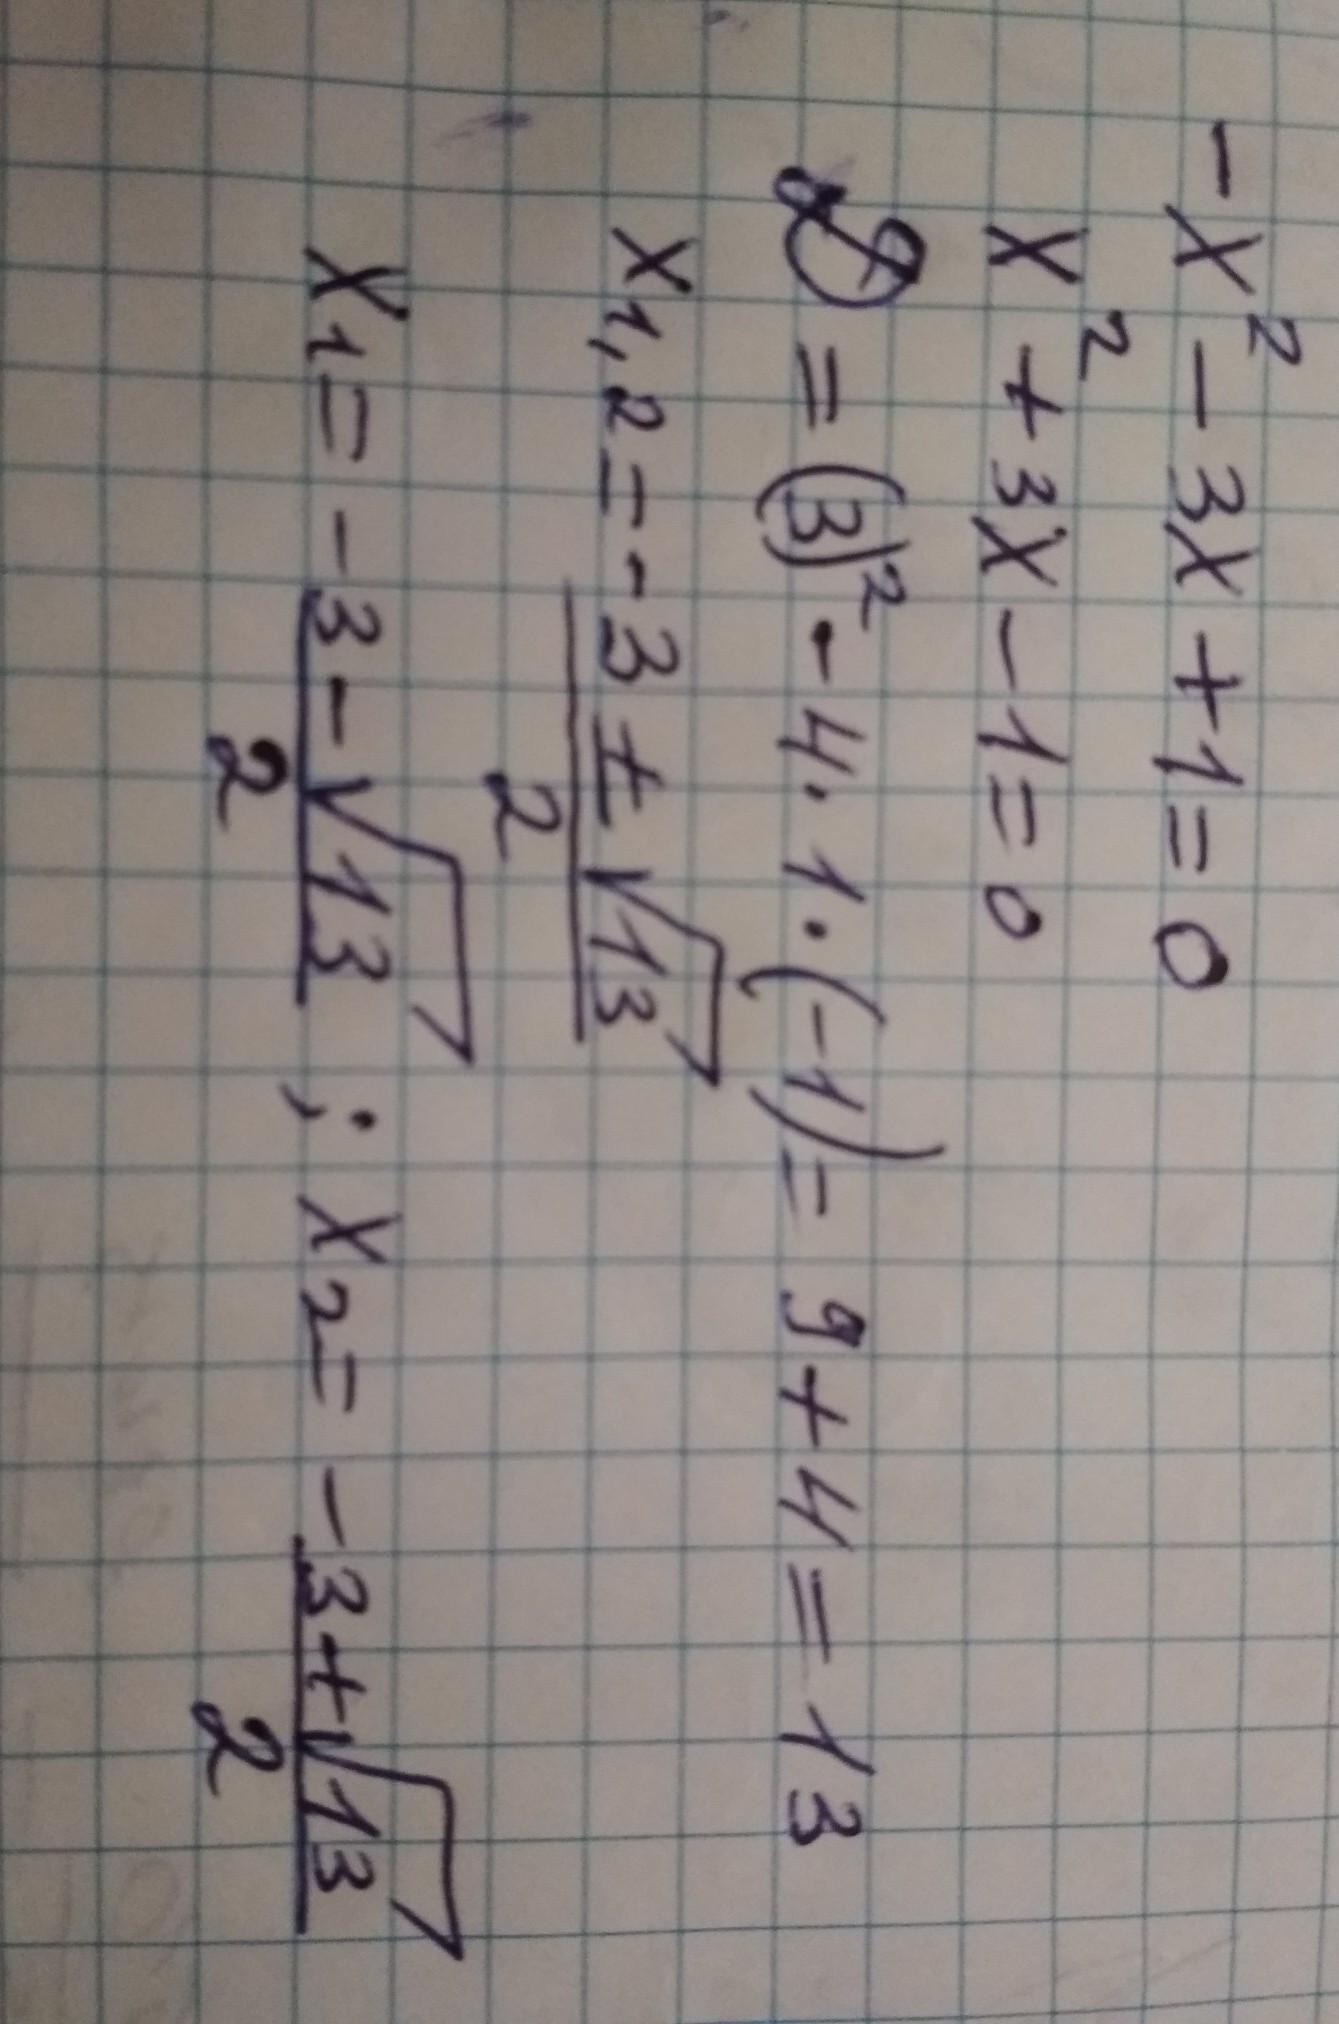 -x² - 3x + 1 = 0
x² + 3x - 1 = 0
D = (3)² - 4 · 1 · (-1) = 9 + 4 = 13
x₁,₂ = (-3 ± √13)/2
x₁ = (-3 - √13)/2 ; x₂ = (-3 + √13)/2